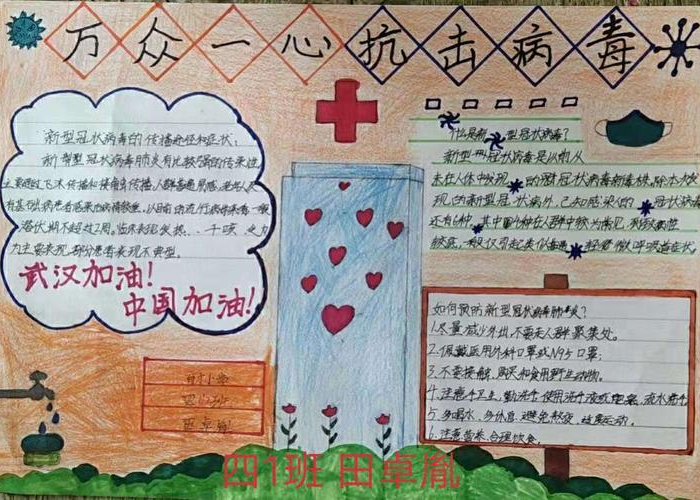 万众一心抗击病毒
新型冠状病毒的传播途径和症状:
新型冠状病毒肺炎有比较强的传染性
主要通过飞沫传播和接触传播,人群普遍易感,老年人及
有基础病患者感染后病情较重,
潜伏期不超过2周,临床表现发热、干咳、乏力
为主要表现,部分患者表现不典型。
武汉加油!
中国加油!
什么是新型冠状病毒?
新型冠状病毒是以前从
未在人体中发现的冠状病毒新毒株,除本次发
现的新型冠状病毒外,已知感染的冠状病毒
还有6种。其中4种在人群中较为常见,致病性
较低,一般仅引起类似普通感冒轻微呼吸道症状。
如何预防新型冠状病毒肺炎?
1.尽量减少外出,不要去人群聚集处。
2.佩戴医用外科口罩或N95口罩;
3.不要接触、购买和食用野生动物。
4.注意手卫生,勤洗手,使用洗手液或肥皂,流水
5.多喝水,多休息,避免熬夜,适度运动。
6.注意营养,合理饮食。
四1班 田卓胤